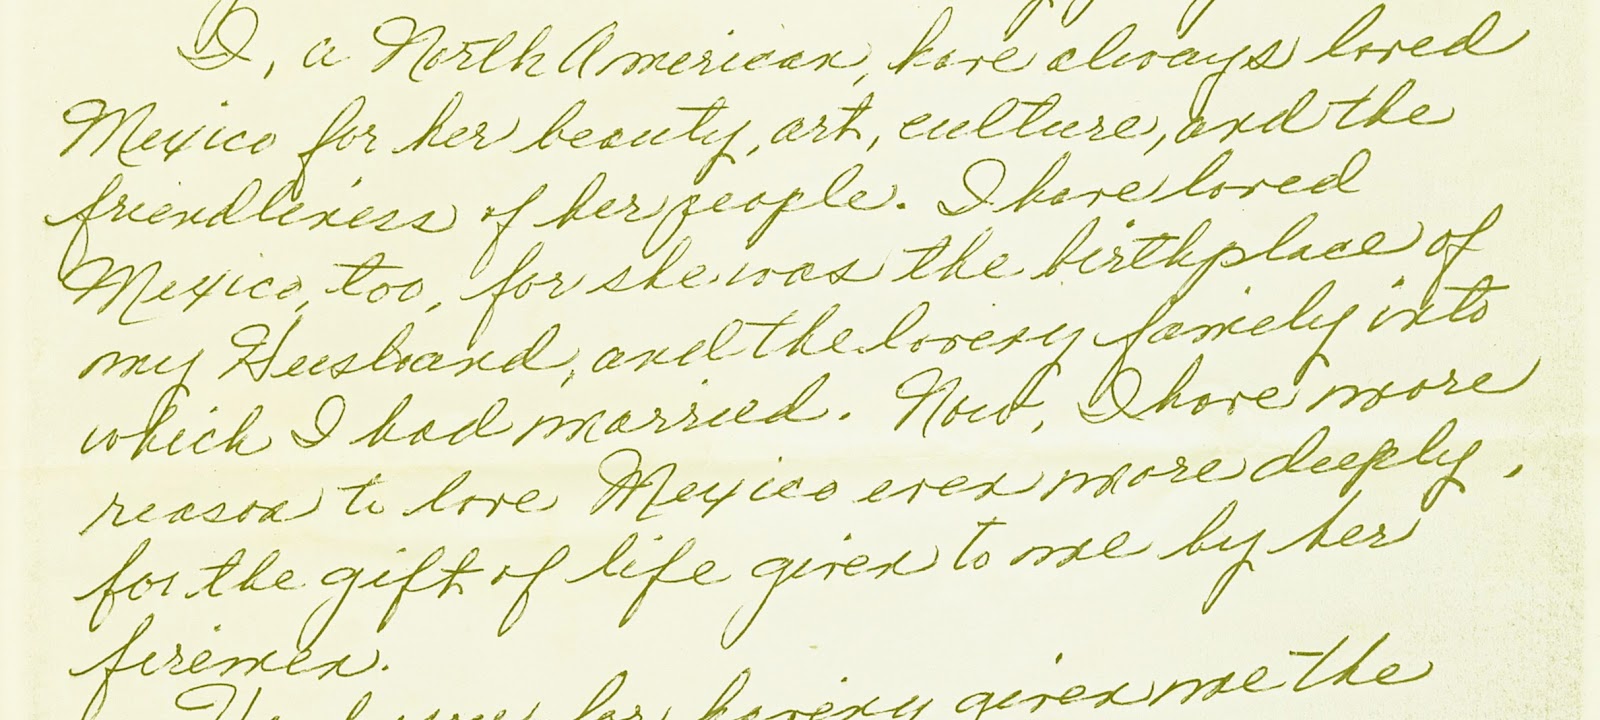 I, a North American, have always loved
Mexico for her beauty, art, culture, and the
friendliness of her people. I have loved
Mexico, too, for she was the birthplace of
my Husband, and the lovely family into
which I had married. Now, I have more
reason to love Mexico even more deeply,
for the gift of life given to me by her
firemen.
for having given me the